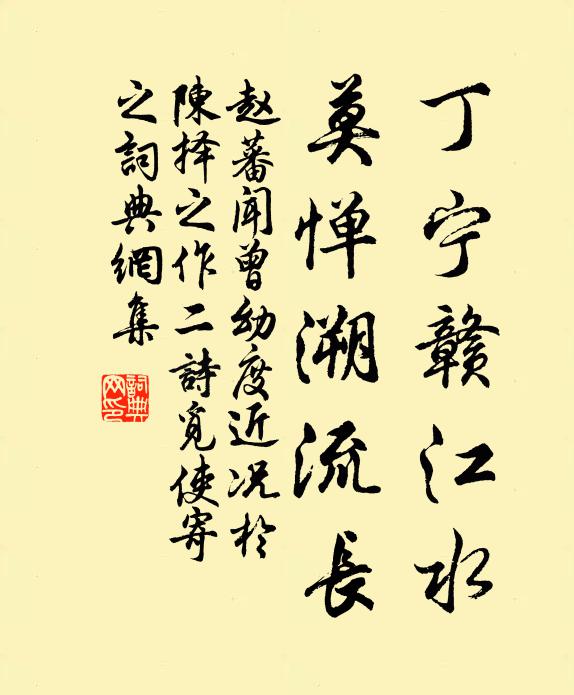 丁宁赣江水
莫惮溯流长
赵蕃闻曾幼度近况於
陳择之作二詩觅使寄
之詞典網集
詞典
网印